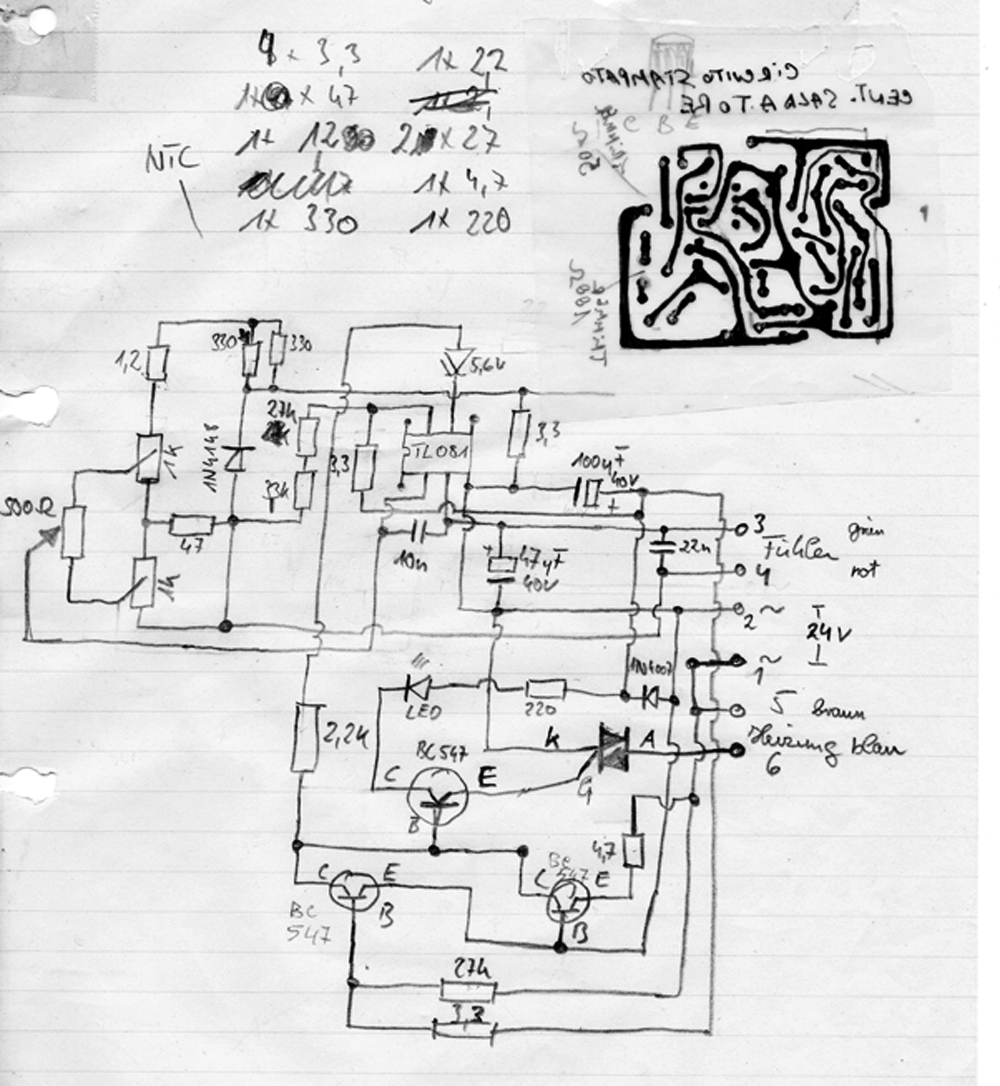 4 x 3,3 1x 22
1x x 47
1x 12 2 x 27
NTC
1x 4,7
1x 330 1x 220
CIRCUITO STAMPATO
CENT. SALDATORE
C B E
330
330
1,2
5,6V
27k
1k
1N4148
3,3
TL081
3,3
100µF
40V
+
33k
500Ω
47
10n
+
47µF
40V
22n
3
Fühler
grün
4
rot
1k
2 ~
24V
~
1
1N4007
LED
220
5 braun
2,2k
BC547
K
A
Heizung blau
6
C
E
G
B
4,7
BC
547
C
E
C
E
B
B
BC
547
27k
3,3